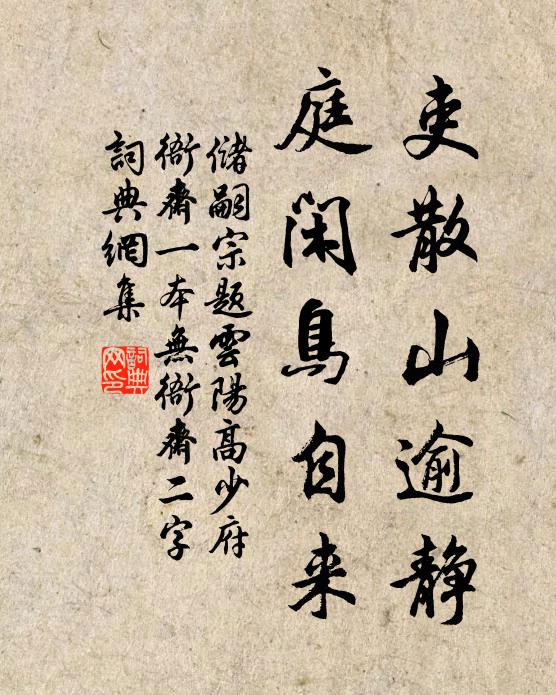 吏散山逾静
庭闲鳥自来
儲嗣宗題雲陽高少府
衙齋一本無衙齋二字
詞典網集
詞典网印